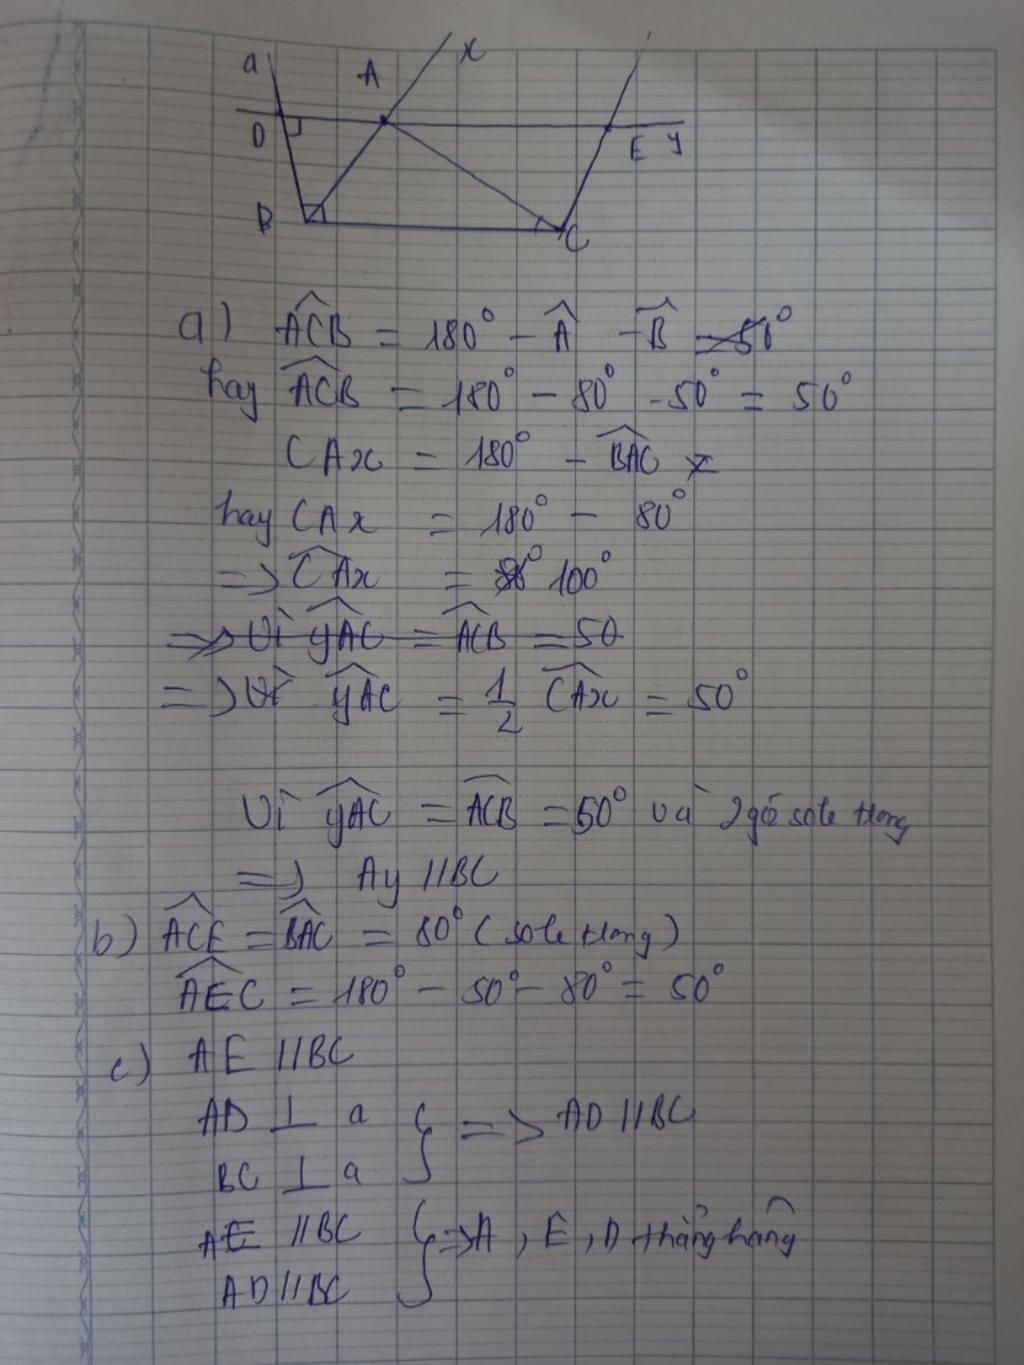 a A x
D E y
B C
a) ACB = 180° - A - B = 50°
hay ACB = 180° - 80° - 50° = 50°
CAx = 180° - BAC
hay CAx = 180° - 80°
=> CAx = 100°
=> Vì yAC = ACB = 50
=> Vì yAC = 1/2 CAx = 50°
Vì yAC = ACB = 50° và 2 gó sole trong
=> Ay // BC
b) ACE = BAC = 80° ( sole trong )
AEC = 180° - 50° - 80° = 50°
c) AE // BC
AD ⊥ a } => AD // BC
BC ⊥ a
AE // BC } => A, E, D thẳng hàng
AD // BC